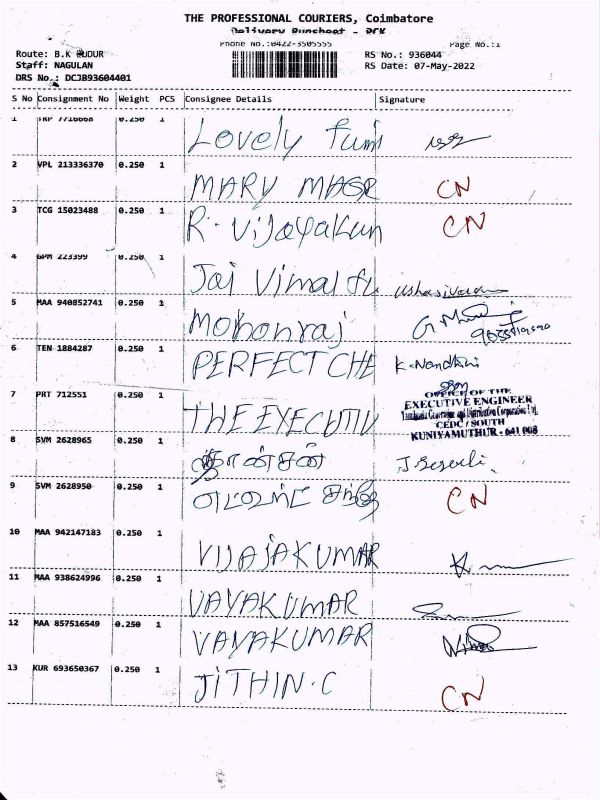 THE PROFESSIONAL COURIERS, Coimbatore
Delivery Runsheet - DCK
Phone No.:0422-3505555 Page No.:1
Route: B.K PUDUR RS No.: 936044
Staff: NAGULAN RS Date: 07-May-2022
DRS No.: DCJB93604401
S No Consignment No Weight PCS Consignee Details Signature
1 TRP 7716668 0.250 1 Lovely
2 VPL 213336370 0.250 1 MARY CN
3 TCG 15023488 0.250 1 R. Vijayakun CN
4 GPM 223399 0.250 1 Jai Vimal
5 MAA 940852741 0.250 1 Mohanraj
6 TEN 1884287 0.250 1 PERFECT CHE K. Nandhini
7 PRT 712551 0.250 1 THE EYECUTIV OFFICE OF THE
EXECUTIVE ENGINEER
CEDC / SOUTH
KUNIYAMUTHUR - 641 008
8 SVM 2628965 0.250 1
9 SVM 2628950 0.250 1 CN
10 MAA 942147183 0.250 1 VIJAJAKUMAR
11 MAA 938624996 0.250 1 VAYAKUMAR
12 MAA 857516549 0.250 1 VAYAKUMAR
13 KUR 693650367 0.250 1 JITHIN.C CN